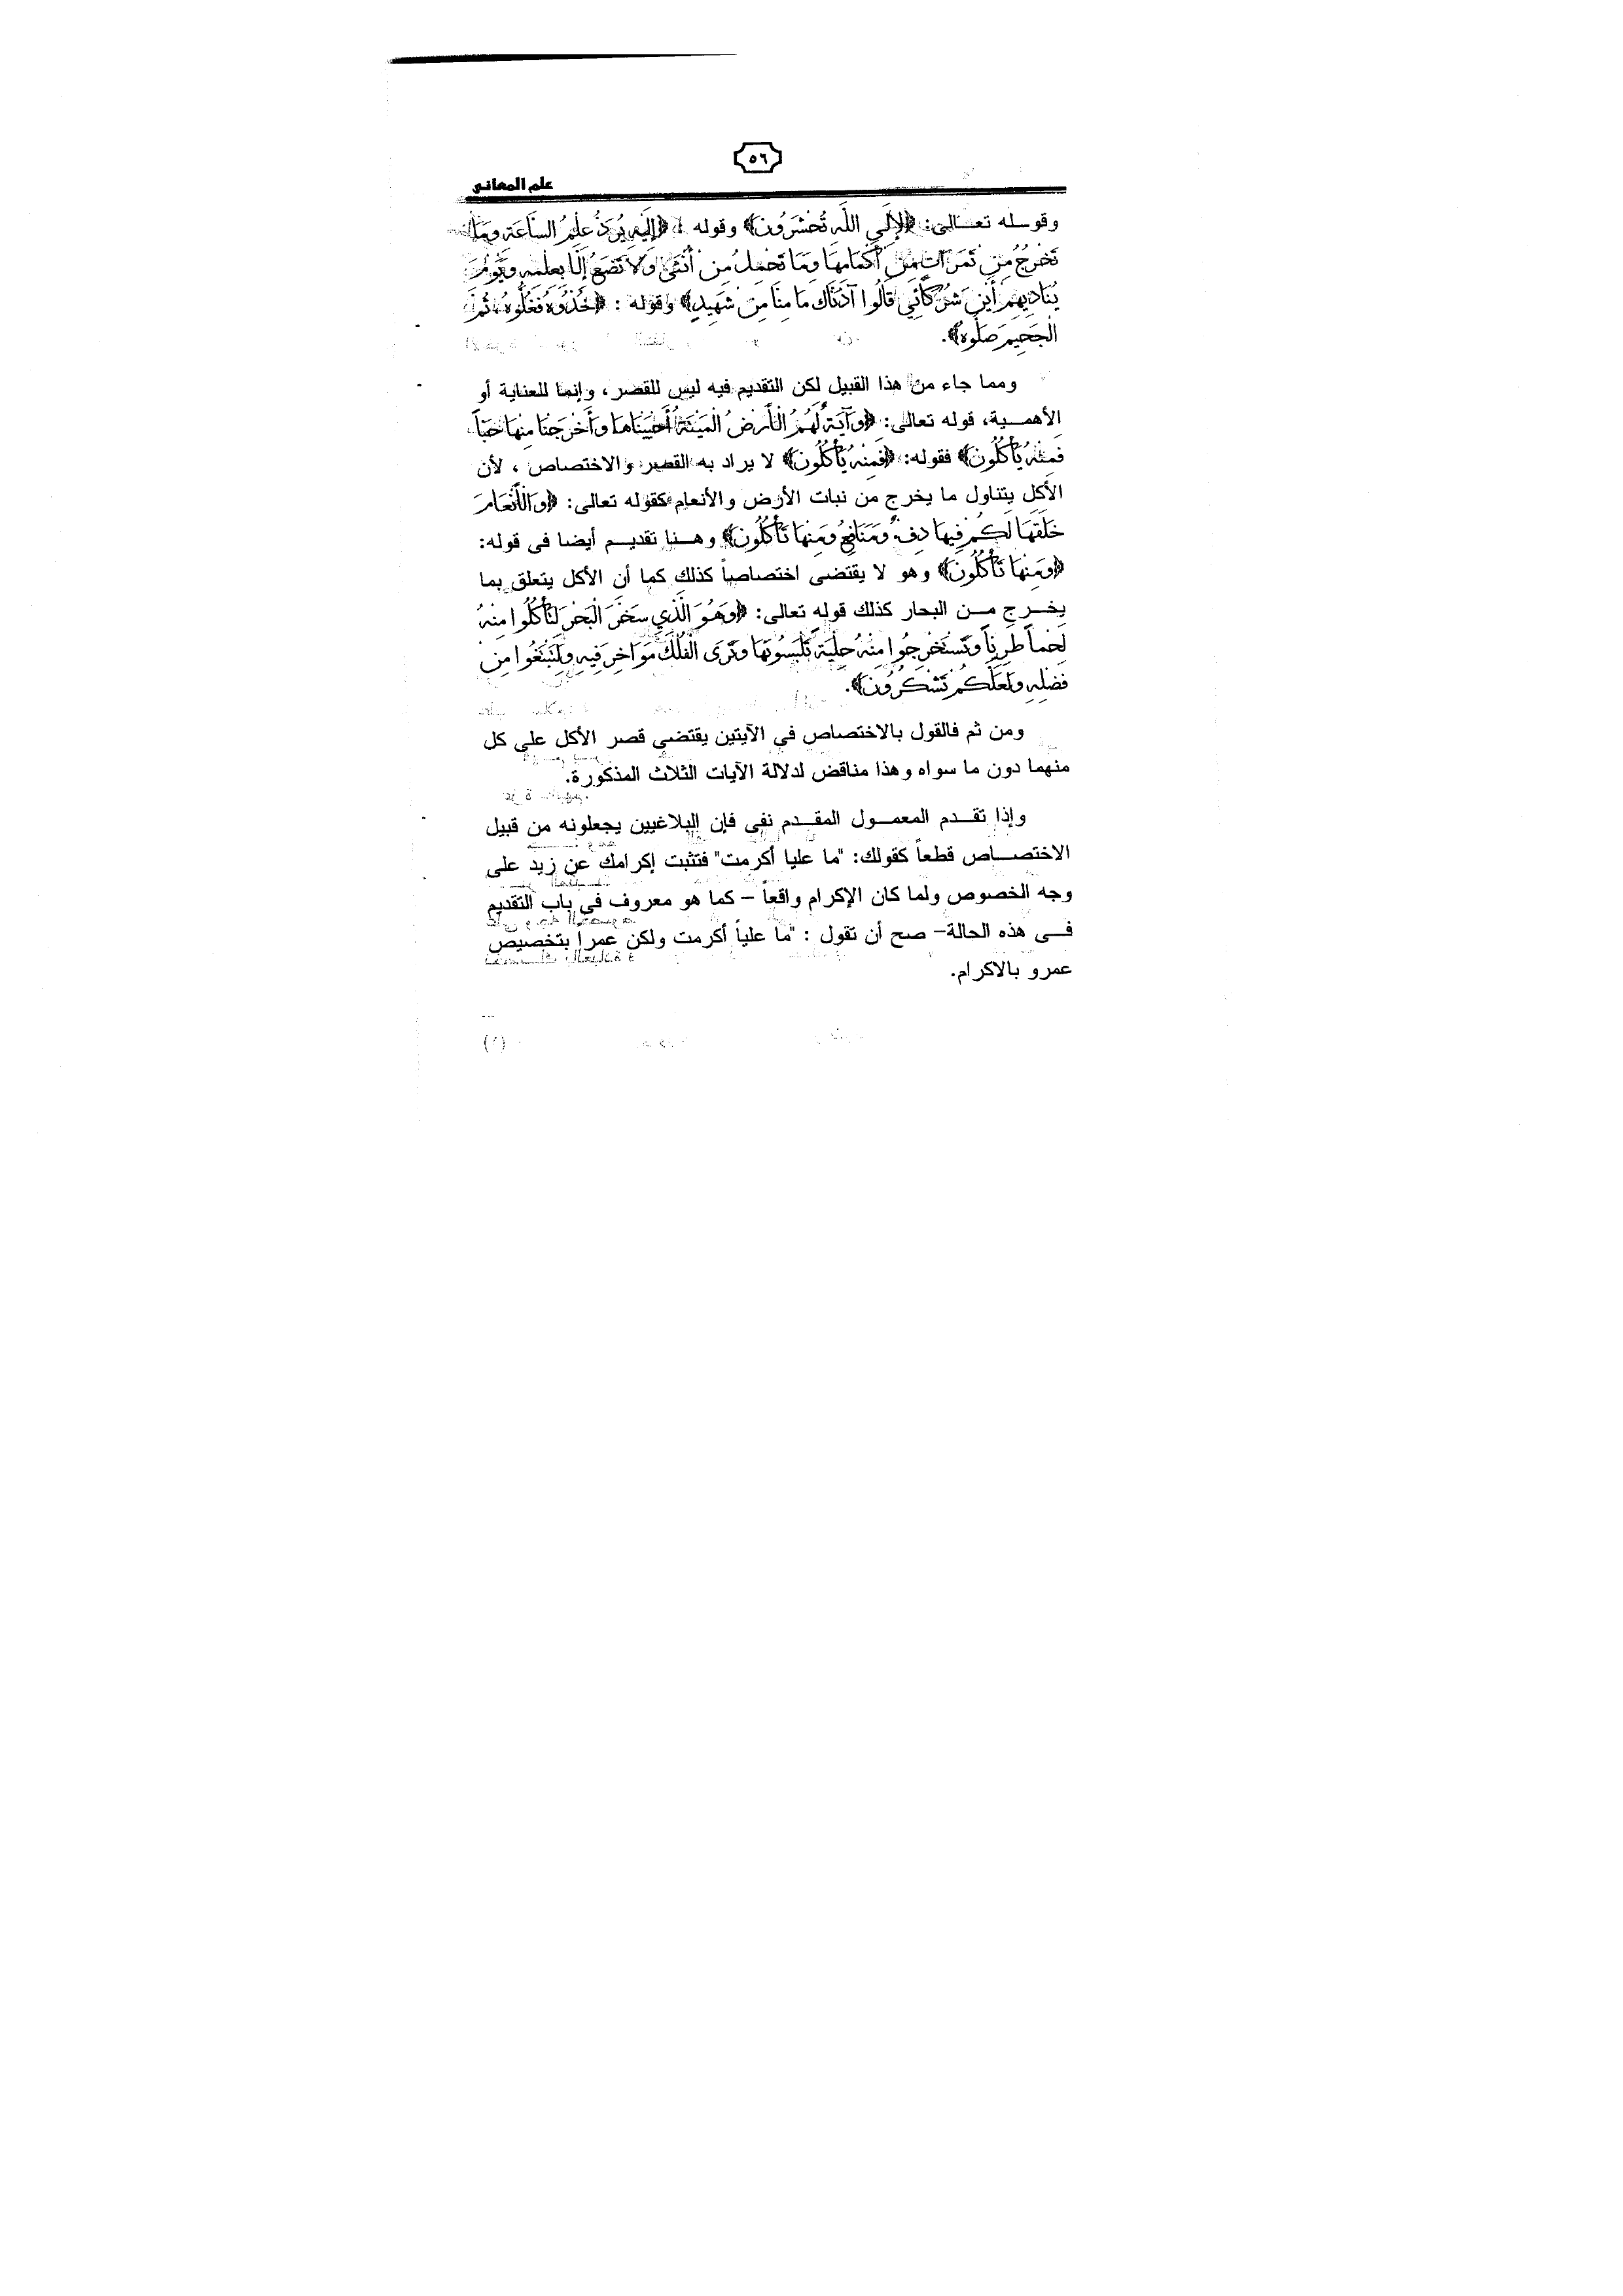 ٥٦
علم المعاني
وقوله تعالى: ﴿لإِلَى اللَّه تُحْشَرُونَ﴾ وقوله : ﴿إِلَيْهِ يُرَدُّ عِلْمُ السَّاعَةِ وَمَا
تَخْرُجُ مِن ثَمَرَاتٍ مِّنْ أَكْمَامِهَا وَمَا تَحْمِلُ مِنْ أُنثَى وَلَا تَضَعُ إِلَّا بِعِلْمِهِ وَيَوْمَ
يُنَادِيهِمْ أَيْنَ شُرَكَائِي قَالُوا آذَنَّاكَ مَا مِنَّا مِن شَهِيدٍ﴾ وقوله : ﴿خُذُوهُ فَغُلُّوهُ ثُمَّ
الْجَحِيمَ صَلُّوهُ﴾.
ومما جاء من هذا القبيل لكن التقديم فيه ليس للقصر، وإنما للعناية أو
الأهمية، قوله تعالى: ﴿وَآيَةٌ لَّهُمُ الْأَرْضُ الْمَيْتَةُ أَحْيَيْنَاهَا وَأَخْرَجْنَا مِنْهَا حَبّاً
فَمِنْهُ يَأْكُلُونَ﴾ فقوله: ﴿فَمِنْهُ يَأْكُلُونَ﴾ لا يراد به القصر والاختصاص ، لأن
الأكل يتناول ما يخرج من نبات الأرض والأنعام كقوله تعالى: ﴿وَالْأَنْعَامَ
خَلَقَهَا لَكُمْ فِيهَا دِفْءٌ وَمَنَافِعُ وَمِنْهَا تَأْكُلُونَ﴾ وهنا تقديم أيضا في قوله:
﴿وَمِنْهَا تَأْكُلُونَ﴾ وهو لا يقتضى اختصاصاً كذلك كما أن الأكل يتعلق بما
يخرج من البحار كذلك قوله تعالى: ﴿وَهُوَ الَّذِي سَخَّرَ الْبَحْرَ لِتَأْكُلُوا مِنْهُ
لَحْماً طَرِيّاً وَتَسْتَخْرِجُوا مِنْهُ حِلْيَةً تَلْبَسُونَهَا وَتَرَى الْفُلْكَ مَوَاخِرَ فِيهِ وَلِتَبْتَغُوا مِنْ
فَضْلِهِ وَلَعَلَّكُمْ تَشْكُرُونَ﴾.
ومن ثم فالقول بالاختصاص في الآيتين يقتضي قصر الأكل على كل
منهما دون ما سواه وهذا مناقض لدلالة الآيات الثلاث المذكورة.
وإذا تقدم المعمول المقدم نفي فإن البلاغيين يجعلونه من قبيل
الاختصاص قطعاً كقولك: "ما عليا أكرمت" فتثبت إكرامك عن زيد على
وجه الخصوص ولما كان الإكرام واقعاً – كما هو معروف في باب التقديم
فى هذه الحالة– صح أن تقول : "ما علياً أكرمت ولكن عمرا بتخصيص
عمرو بالاكرام.